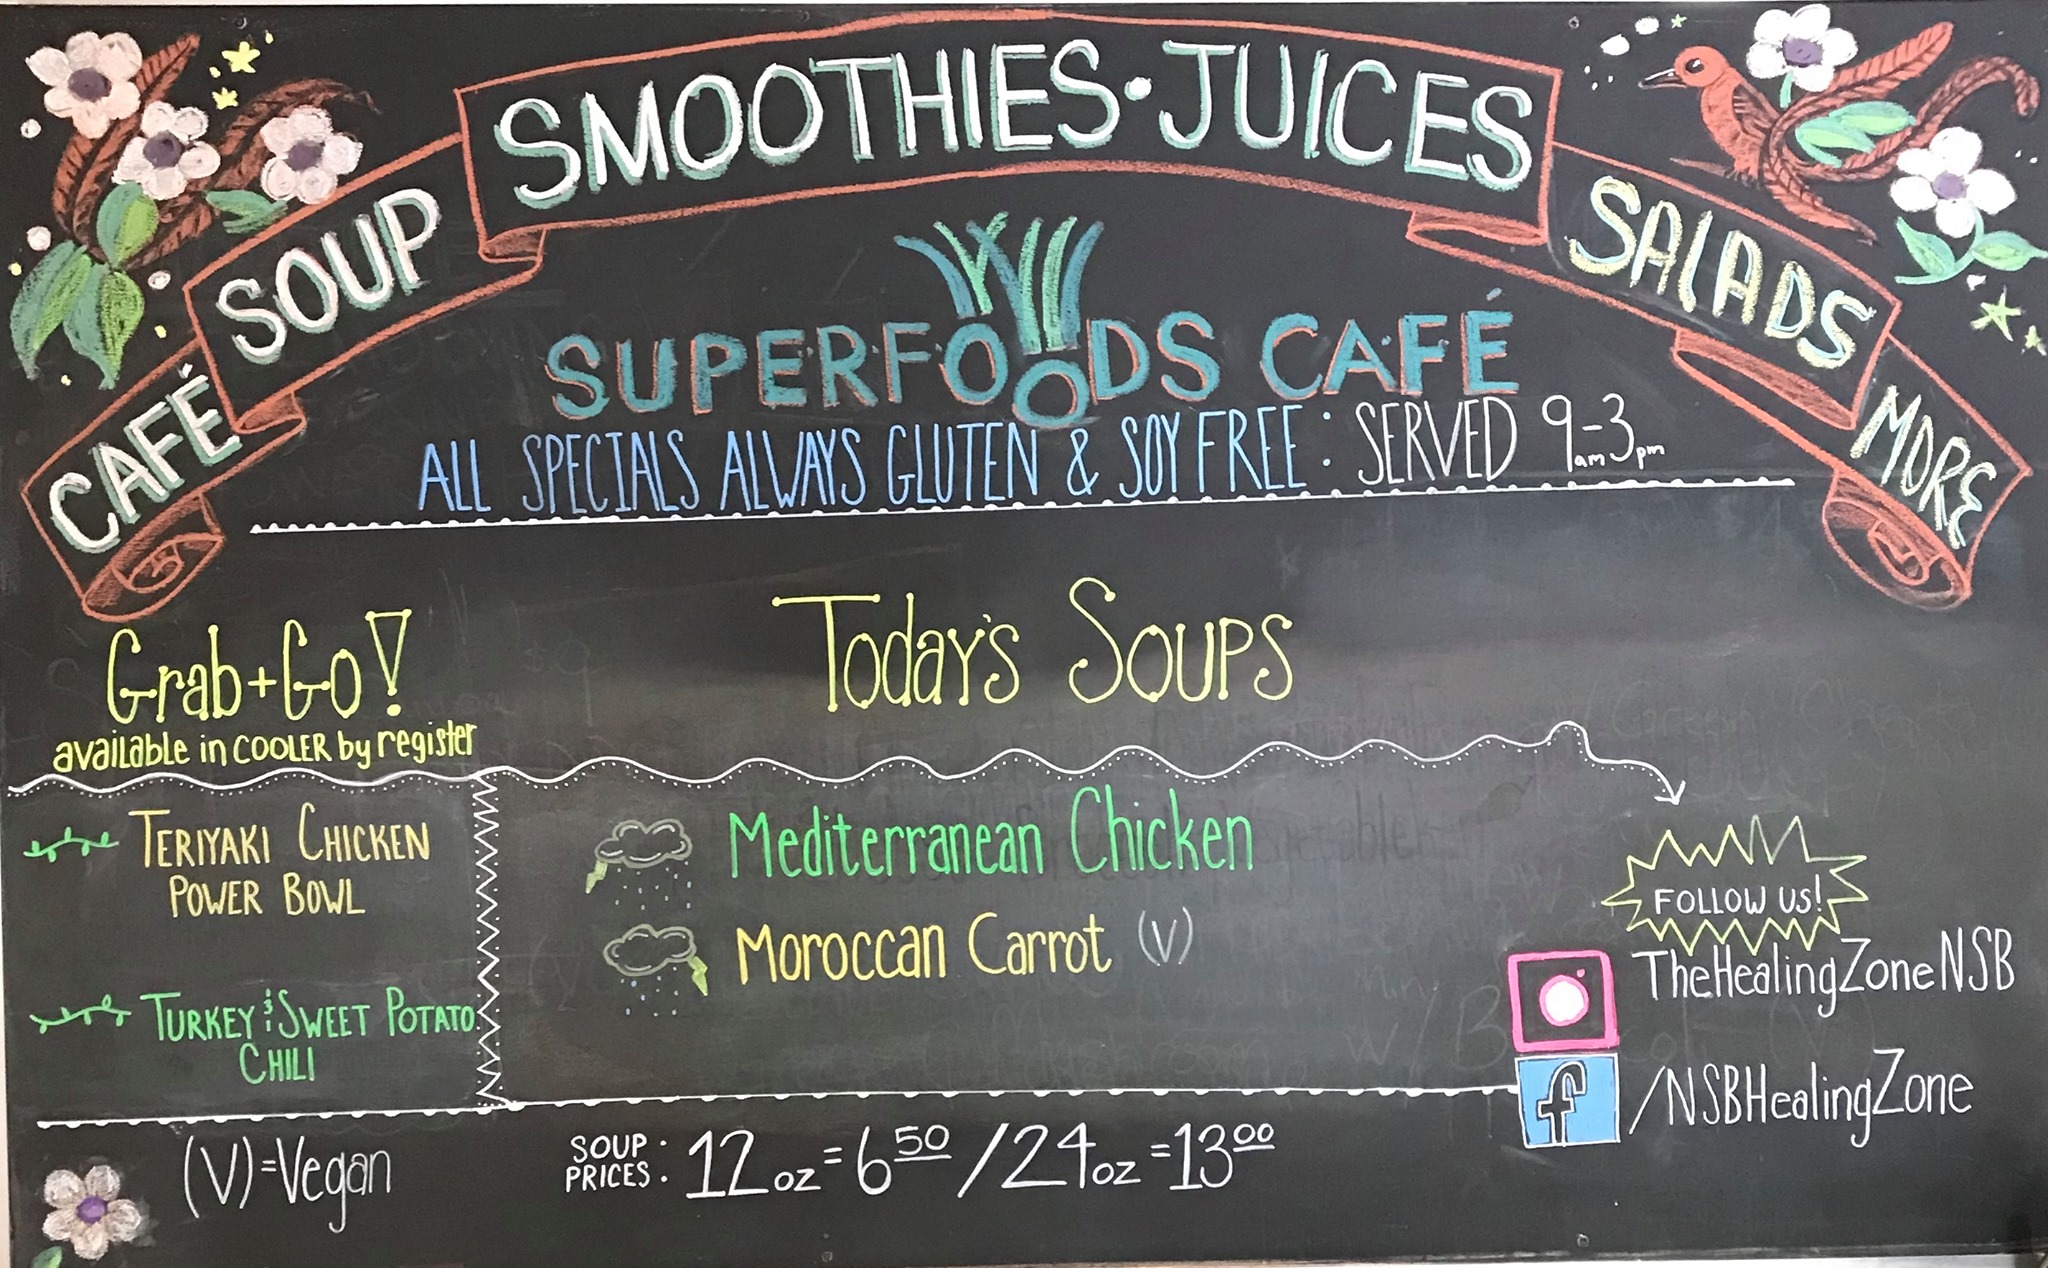 CAFÉ
SOUP
SMOOTHIES · JUICES
SALADS
MORE
SUPERFOODS CAFÉ
ALL SPECIALS ALWAYS GLUTEN & SOY FREE : SERVED 9am-3pm
Grab + Go!
available in COOLER by register
TERIYAKI CHICKEN
POWER BOWL
TURKEY & SWEET POTATO
CHILI
(V)=Vegan
Today's Soups
Mediterranean Chicken
Moroccan Carrot (V)
SOUP PRICES: 12oz = 6 50 / 24oz = 13 00
FOLLOW US!
TheHealingZoneNSB
f /NSBHealingZone